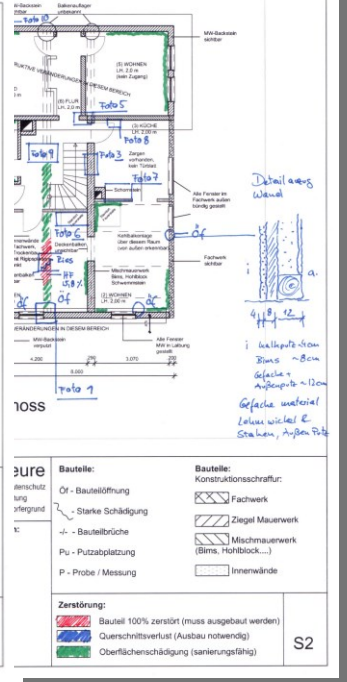 MW-Backstein
sichtbar
Balkenauflager
unbekannt
Foto 10
MW-Backstein
sichtbar
(5) WOHNEN
LH. 2,0 m
(kein Zugang)
RUKTIVE VERÄNDERUNGEN IN DIESEM BEREICH
(6) FLUR
LH. 2,0 m
Foto 5
(3) KÜCHE
LH. 2,00 m
Foto 8
Foto 9
Foto 3
Zargen
vorhanden,
kein Türblatt
Foto 7
Schornstein
Alle Fenster im
Fachwerk außen
bündig gestellt
Detail
Wand
Foto 6
Deckenbalken
Bims
HF
15,8 %
Öf
Kehlbalkenlage
über diesem Raum
Öf
Mischmauerwerk
Bims, Hohlblock
Schwemmstein
Fachwerk
sichtbar
i
a.
(2) WOHNEN
LH. 2,00 m
Öf
4 8 12
ERÄNDERUNGEN IN DIESEM BEREICH
MW-Backstein
verputzt
Alle Fenster
MW in Laibung
gestellt
4.200
290
3.070
200
9.000
Foto 1
i Kalkputz ~4cm
Bims ~8cm
Gefache +
Außenputz ~12cm
Gefache material
Lehmwickel &
Staken, Außen Putz
hoss
eure
Bauteile:
Öf - Bauteilöffnung
- Starke Schädigung
-/- - Bauteilbrüche
Pu - Putzabplatzung
P - Probe / Messung
Bauteile:
Konstruktionsschraffur:
Fachwerk
Ziegel Mauerwerk
Mischmauerwerk
(Bims, Hohlblock....)
Innenwände
Zerstörung:
Bauteil 100% zerstört (muss ausgebaut werden)
Querschnittsverlust (Ausbau notwendig)
Oberflächenschädigung (sanierungsfähig)
S2